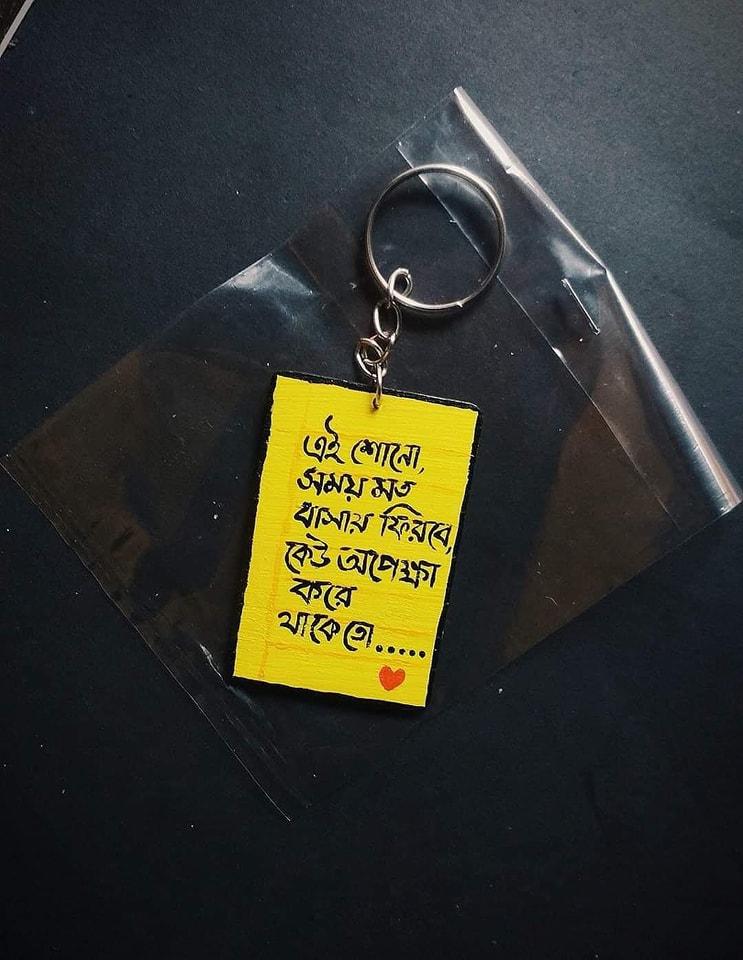 এই শোনো,
সময় মত
বাসায় ফিরবে,
কেউ অপেক্ষা
করে
থাকে তো.....